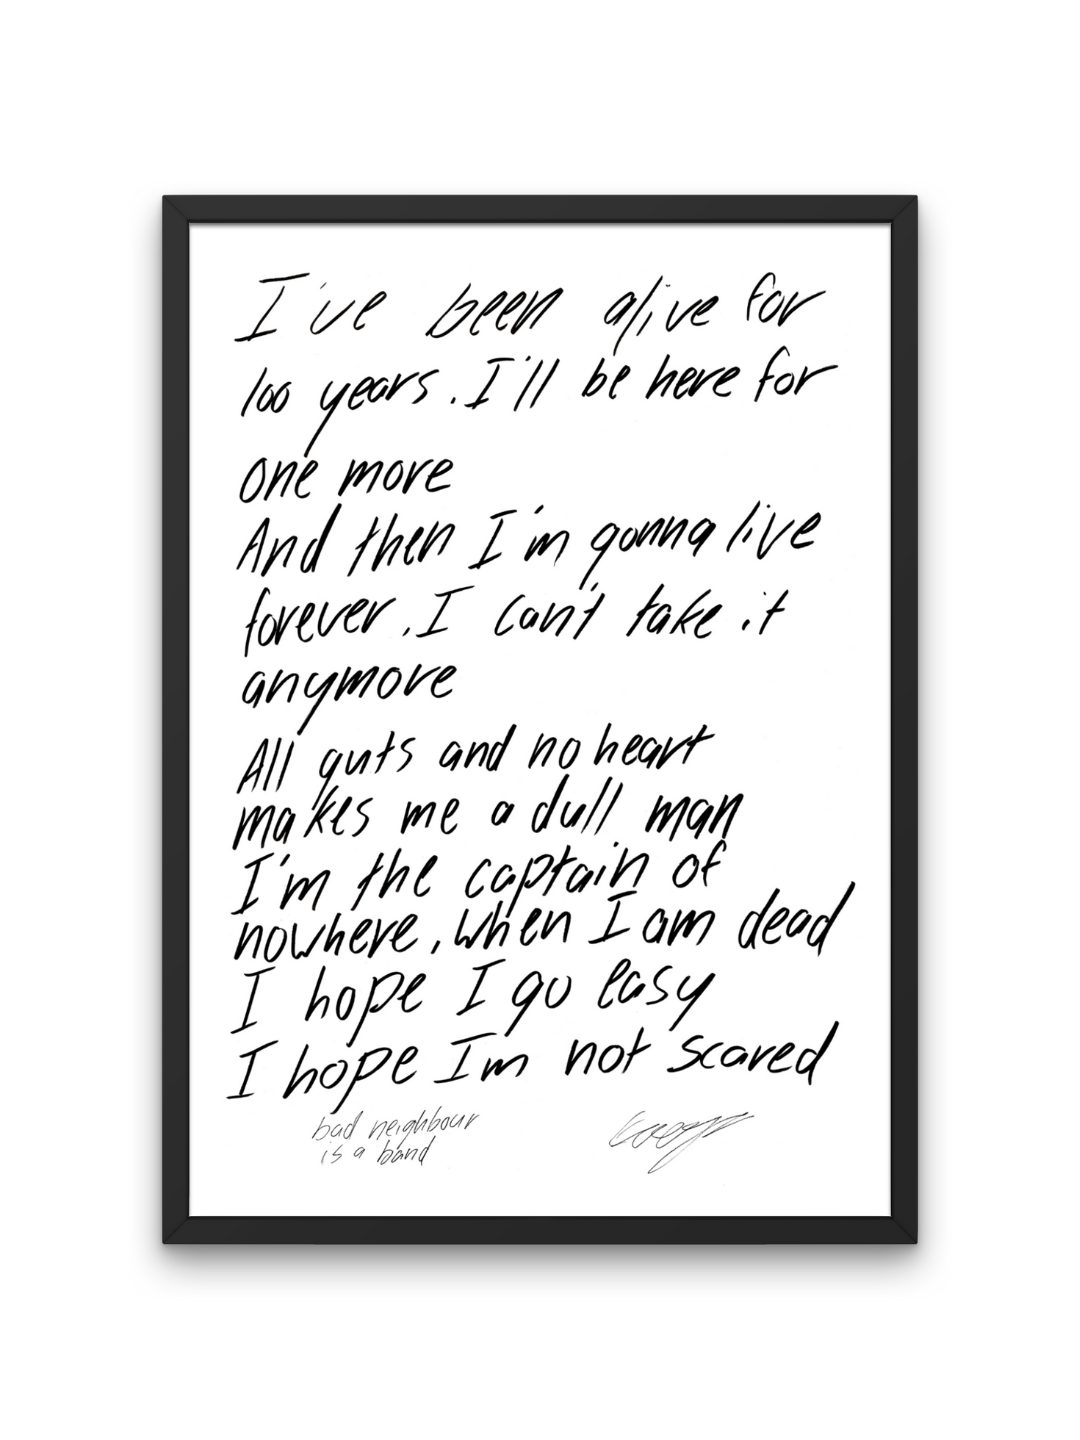 I've been alive for
100 years. I'll be here for
one more
And then I'm gonna live
forever. I can't take it
anymore
All guts and no heart
makes me a dull man
I'm the captain of
nowhere, when I am dead
I hope I go easy
I hope Im not scared
bad neighbour
is a band